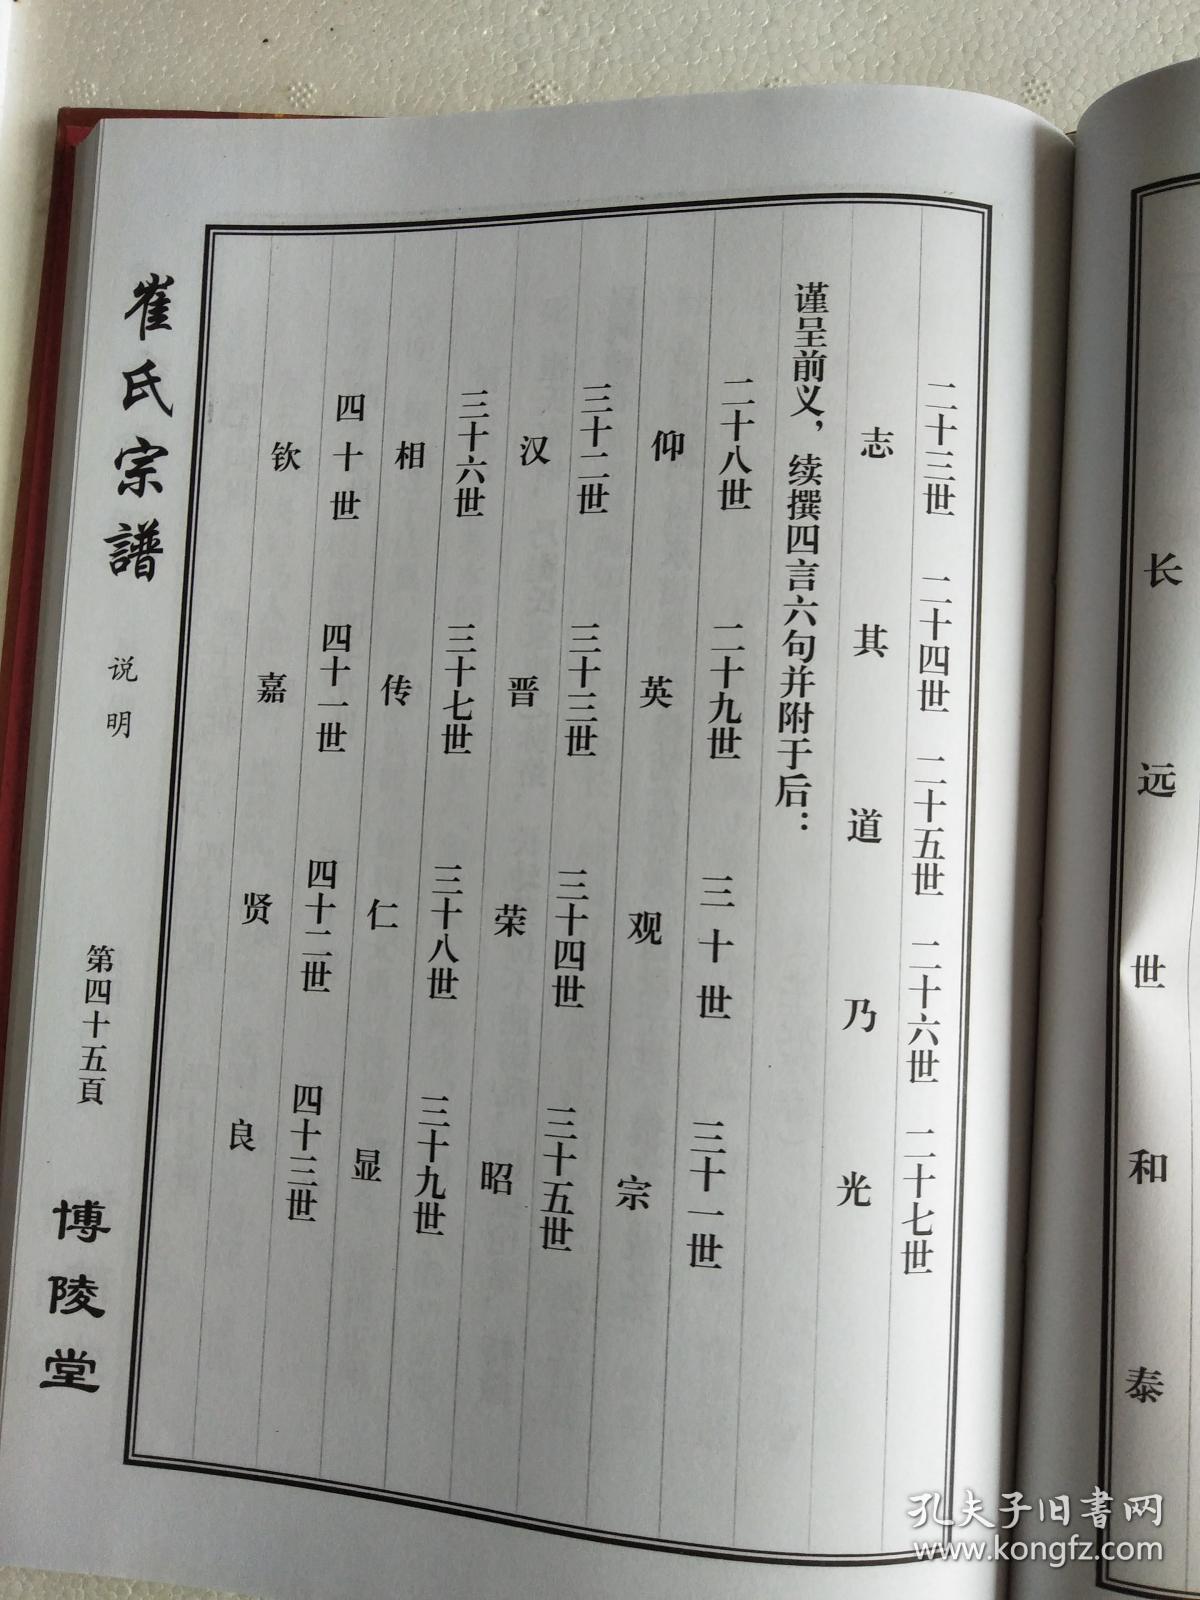 长远世和泰
二十三世 二十四世 二十五世 二十六世 二十七世
志其道乃光
谨呈前义，续撰四言六句并附于后：
二十八世 二十九世 三十世 三十一世
仰英观宗
三十二世 三十三世 三十四世 三十五世
汉晋荣昭
三十六世 三十七世 三十八世 三十九世
相传仁显
四十世 四十一世 四十二世 四十三世
钦嘉贤良
崔氏宗譜 说明 第四十五頁 博陵堂
孔夫子旧书网
www.kongfz.com